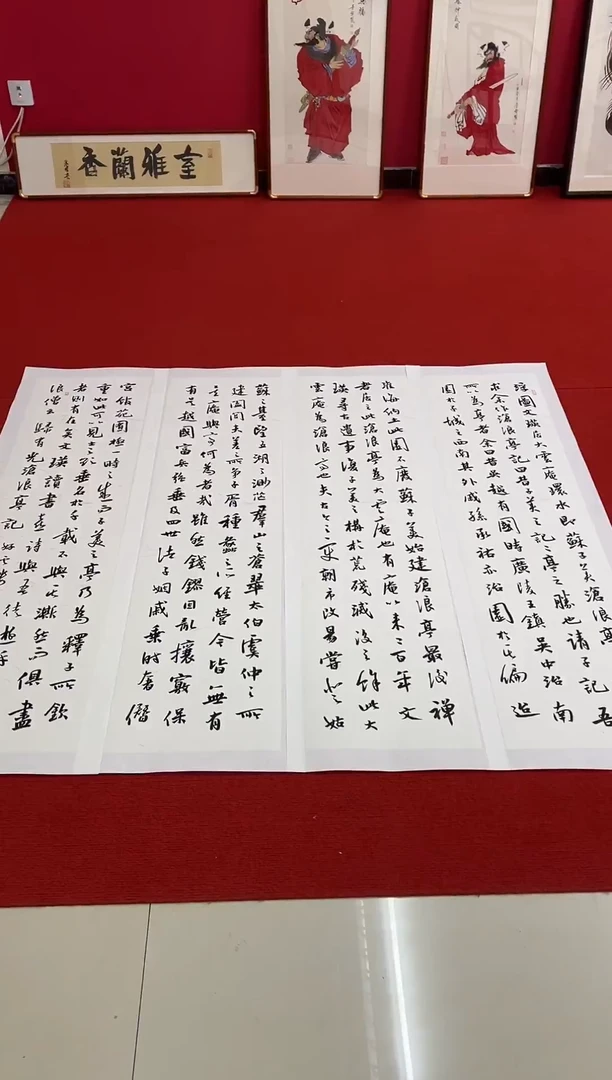 室雅蘭香
浮圖文瑛居大雲庵環水即蘇子美滄浪亭
求余作滄浪亭記曰昔子美之記記亭之勝也請子記吾
所以為亭者余曰昔吳越有國時廣陵王鎮吳中治南
園於子城之西南其外戚孫承祐亦治園於其偏迨
淮海納土此園不廢蘇子美始建滄浪亭最後禪
者居之此滄浪亭為大雲庵也有庵以來二百年文
瑛尋古遺事復子美之構於荒殘滅沒之餘此大
雲庵為滄浪亭也夫古今之變朝市改易嘗登姑
蘇之臺望五湖之渺茫群山之蒼翠太伯虞仲之所
建闔閭夫差之所爭子胥種蠡之所經營今皆無有
矣庵與亭何為者哉雖然錢鏐因亂攘竊保
有吳越國富兵強垂及四世諸子姻戚乘時奢僭
宮館苑囿極一時之盛而子美之亭乃為釋子所欽
重如此可以見士之欲垂名於千載不與其澌然而俱盡
者則有在矣文瑛讀書喜詩與吾徒遊呼
浪僧云歸有光滄浪亭記